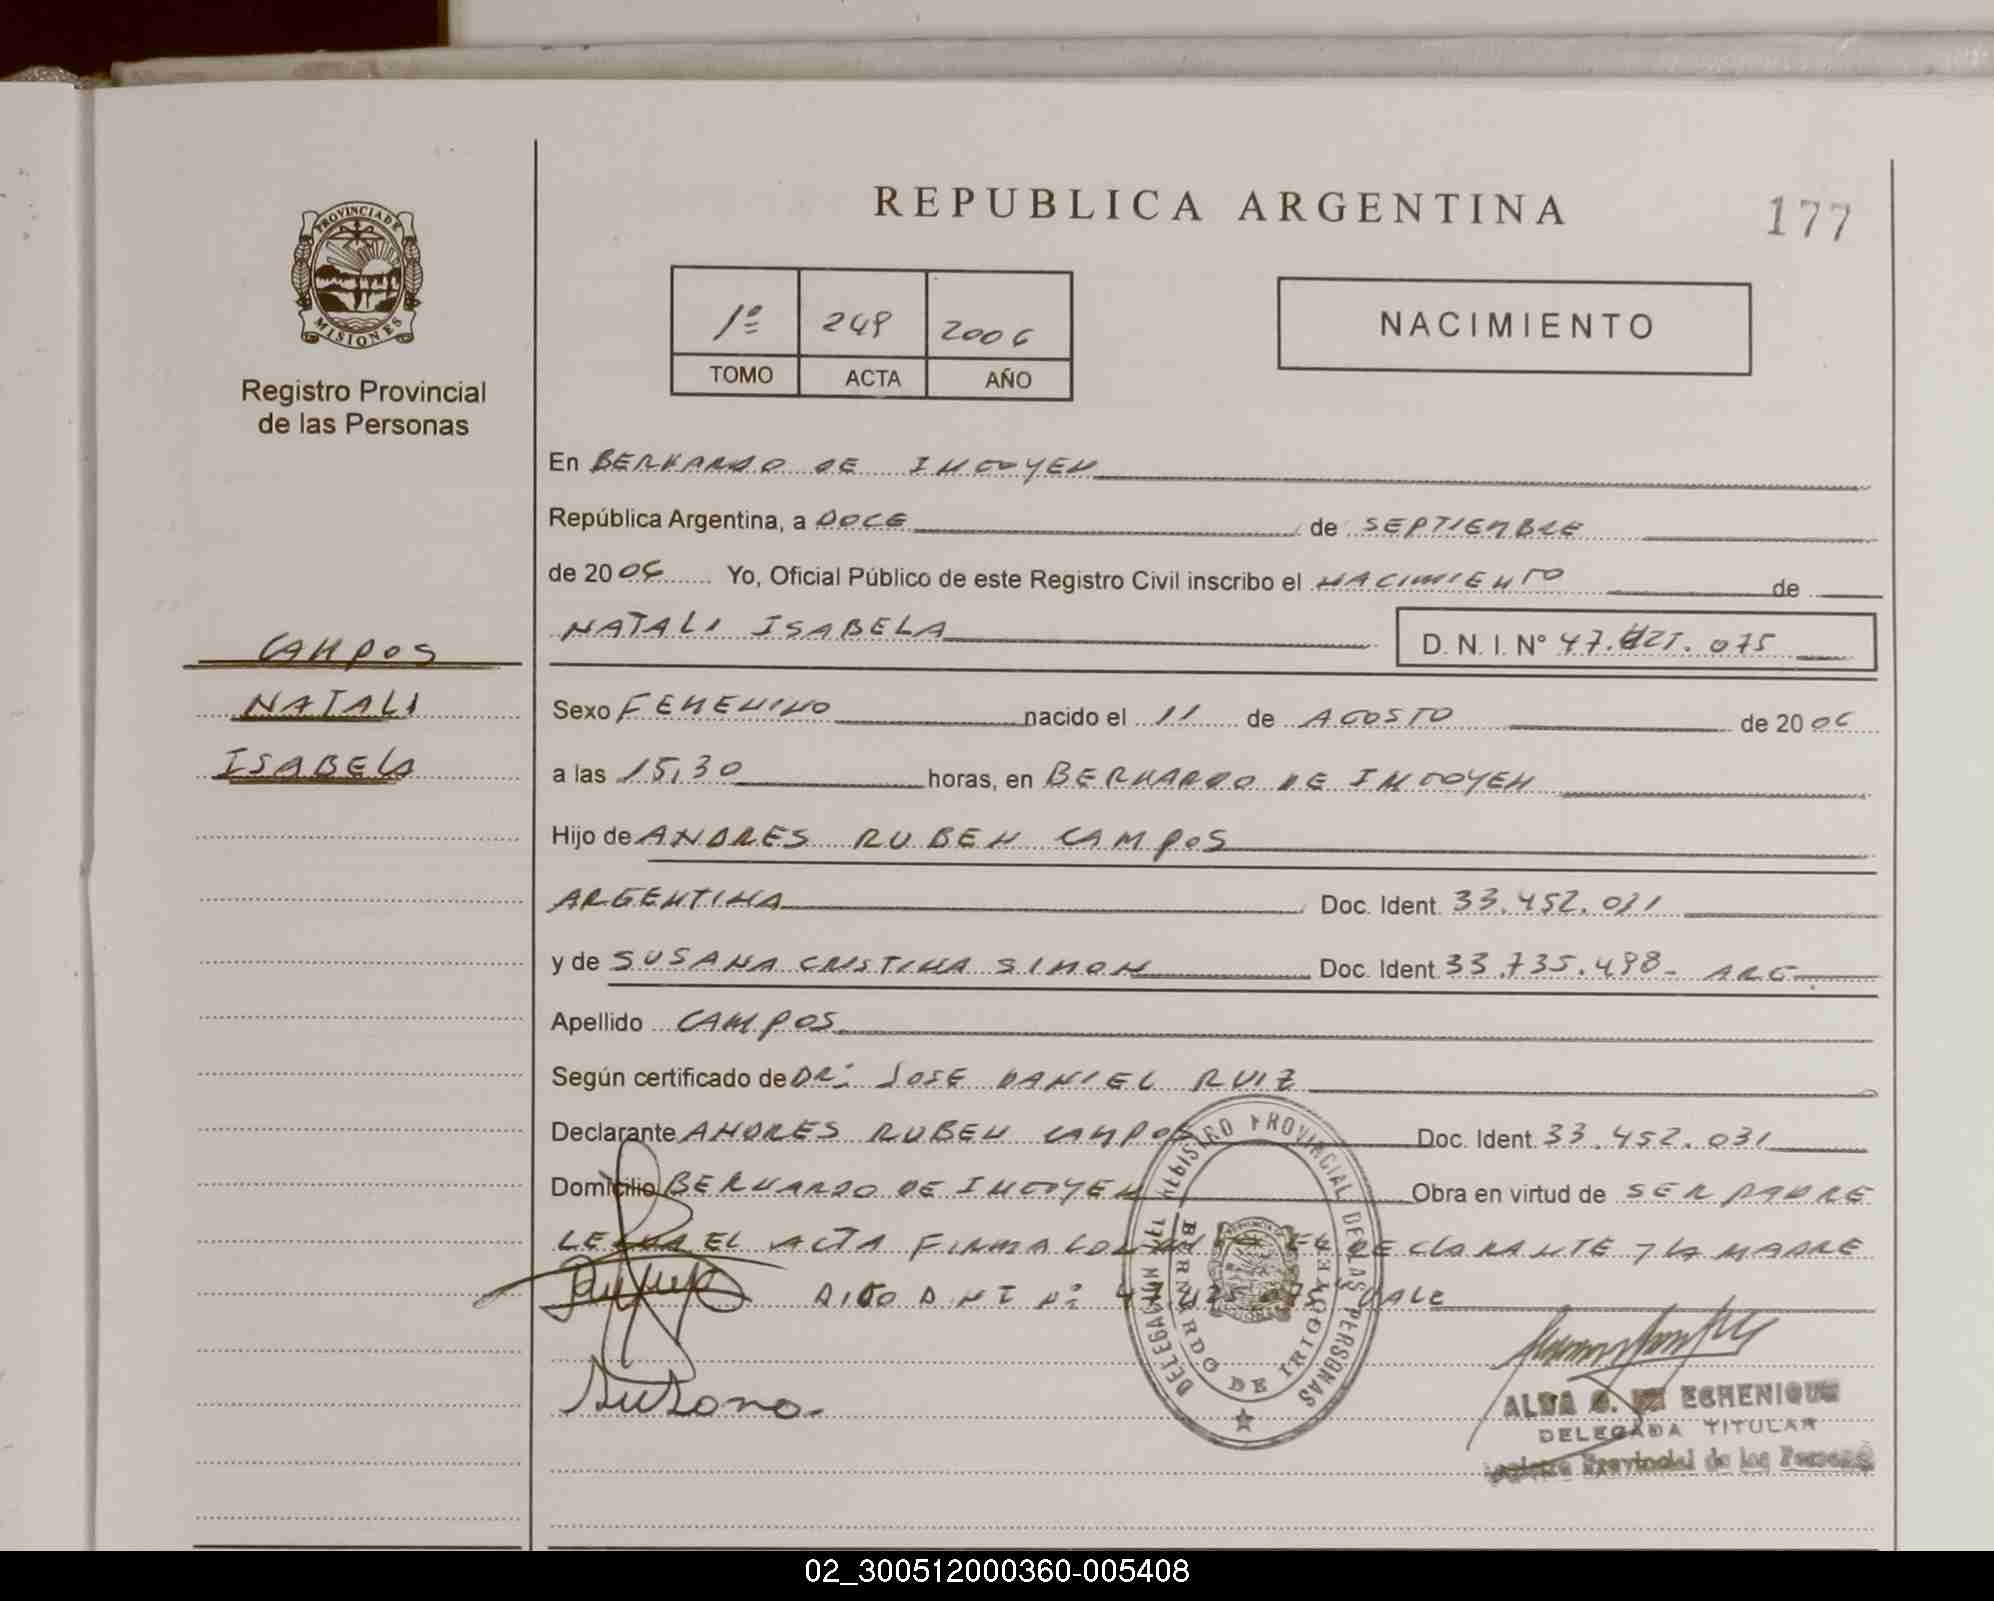 REPUBLICA ARGENTINA
177
PROVINCIA DE
MISIONES
Registro Provincial
de las Personas
1º 249 2006
TOMO ACTA AÑO
NACIMIENTO
En BERNARDO DE IRIGOYEN
República Argentina, a DOCE de SEPTIEMBRE
de 2006 Yo, Oficial Público de este Registro Civil inscribo el NACIMIENTO de
NATALI ISABELA D. N. I. Nº 47.425.075
CAMPOS
NATALI
ISABELA
Sexo FEMENINO nacido el 11 de AGOSTO de 2006
a las 15,30 horas, en BERNARDO DE IRIGOYEN
Hijo de ANDRES RUBEN CAMPOS
ARGENTINA Doc. Ident. 33.452.031
y de SUSANA CRISTINA SIMON Doc. Ident. 33.735.498- ARG
Apellido CAMPOS
Según certificado de DR: JOSE DANIEL RUIZ
Declarante ANDRES RUBEN CAMPOS Doc. Ident. 33.452.031
Domicilio BERNARDO DE IRIGOYEN Obra en virtud de SER PADRE
EL ACTA FIRMA EL DECLARANTE Y LA MADRE
DIGO DNI Nº 47.425.075 VALE
DELEGACION DEL REGISTRO PROVINCIAL DE LAS PERSONAS
BERNARDO DE IRIGOYEN
Susana.
ALBA DE ECHENIQUE
DELEGADA TITULAR
Registro Provincial de las Personas
02_300512000360-005408